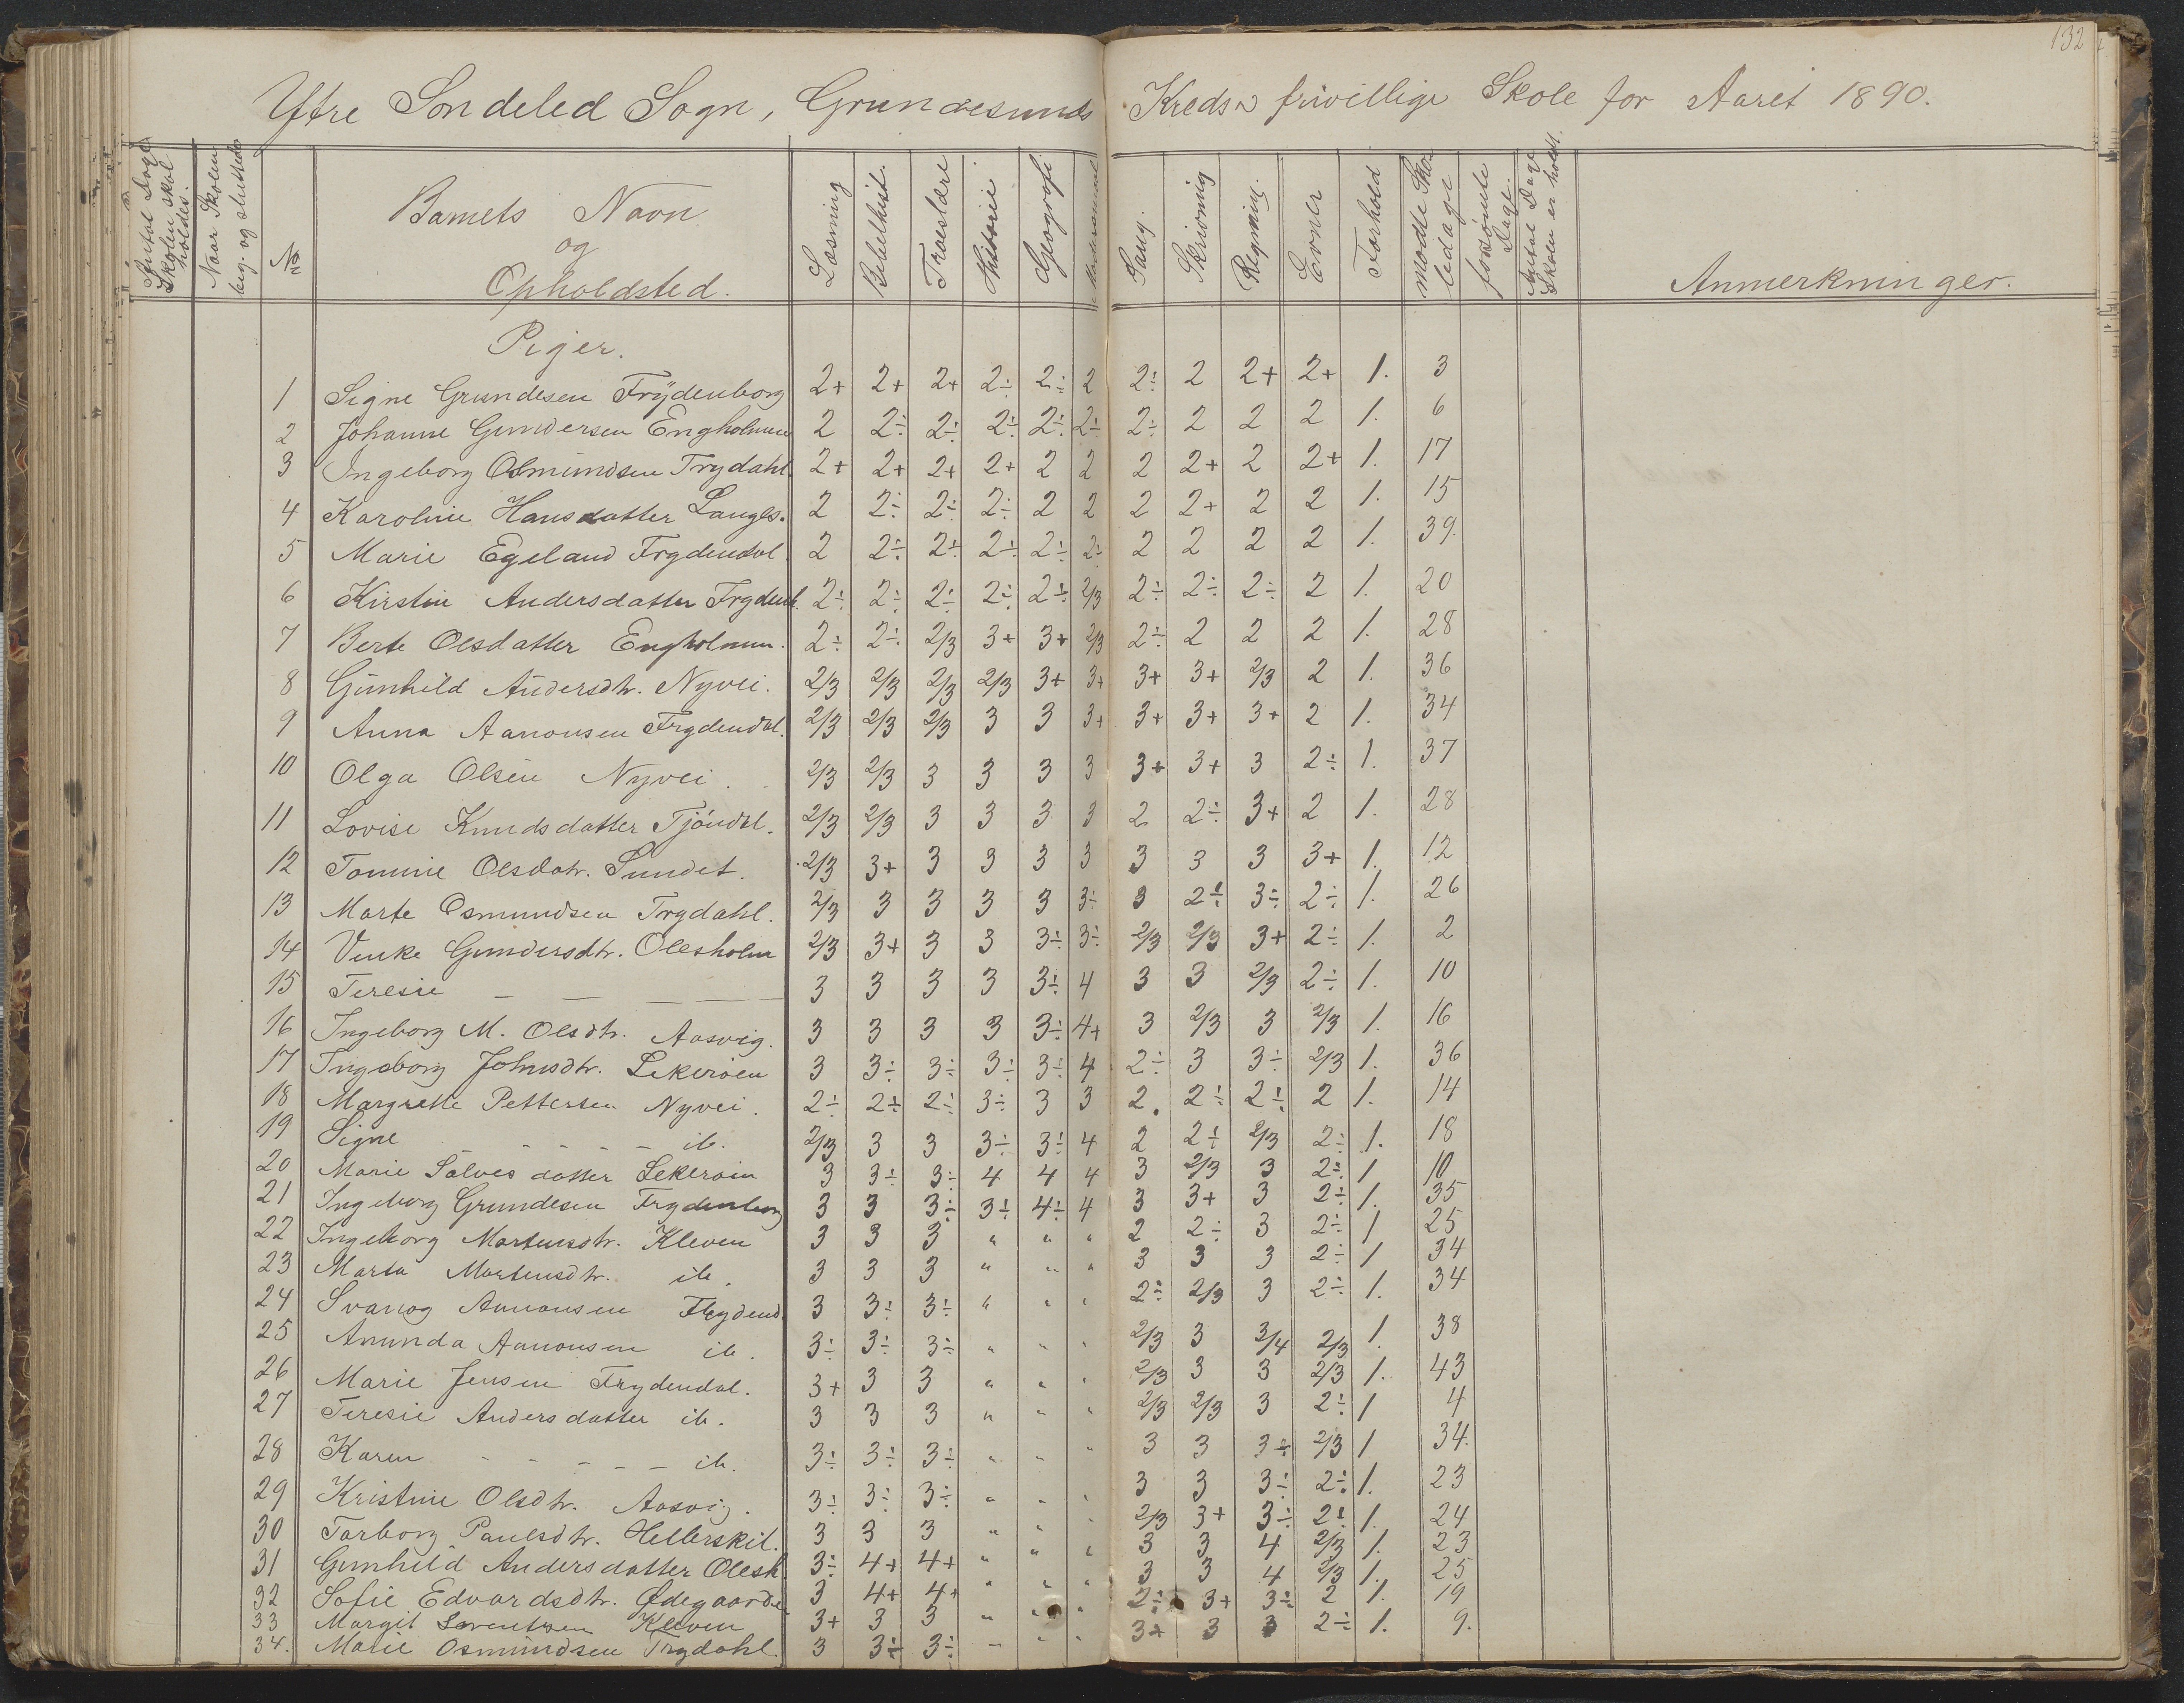 132
Yttre Søndeled Sogn, Grundesunds Kredses frivillige Skole for Aaret 1890.
Antal Dage Skolen skal holdes.
Naar Skolen beg. og sluttede
No
Barnets Navn
og
Opholdsted.
Læsning
Bibelhist.
Troeslære
Historie
Geografi
Modersmaal
Sang.
Skrivning
Regning.
Evner
Forhold
mødte Skoledage
forsømte Dage.
Antal Dage Skolen er holdt.
Anmerkninger.
Piger.
1 Signe Grundesen Frydenborg 2+ 2+ 2+ 2÷ 2÷ 2 2÷ 2 2+ 2+ 1. 3
2 Johanne Gundersen Engholmen 2 2÷ 2÷ 2÷ 2÷ 2÷ 2÷ 2 2 2 1. 6
3 Ingeborg Osmundsen Trydahl 2+ 2+ 2+ 2+ 2 2 2 2+ 2 2+ 1. 17
4 Karoline Hansdatter Laugls. 2 2÷ 2÷ 2÷ 2 2 2 2+ 2 2 1. 15
5 Marie Egeland Frydendal 2 2÷ 2÷ 2÷ 2÷ 2÷ 2 2 2 2 1. 39.
6 Kirstin Andersdatter Frydenl. 2÷ 2÷ 2÷ 2÷ 2÷ 2/3 2÷ 2÷ 2÷ 2 1. 20
7 Berte Olsdatter Engholmen. 2÷ 2÷ 2/3 3+ 3+ 2/3 2÷ 2 2 2 1. 28
8 Gunhild Andersdtr. Nyvei. 2/3 2/3 2/3 2/3 3+ 3+ 3+ 3+ 2/3 2 1. 36
9 Anna Aanonsen Frydendal. 2/3 2/3 2/3 3 3 3+ 3+ 3+ 3+ 2 1. 34
10 Olga Olsen Nyvei. 2/3 2/3 3 3 3 3 3+ 3+ 3 2÷ 1. 37
11 Lovise Knudsdatter Tjøndal. 2/3 2/3 3 3 3 3 2 2÷ 3+ 2 1. 28
12 Tomine Olsdatr. Sundet. 2/3 3+ 3 3 3 3 3 3 3 3+ 1. 12
13 Marte Osmundsen Trydahl. 2/3 3 3 3 3 3÷ 3 2÷ 3÷ 2÷ 1. 26
14 Vinke Gundersdtr. Olesholm 2/3 3+ 3 3 3÷ 3÷ 2/3 2/3 3+ 2÷ 1. 2
15 Teresie — — — — 3 3 3 3 3÷ 4 3 3 2/3 2÷ 1. 10
16 Ingeborg M. Olsdtr. Aasvig. 3 3 3 3 3÷ 4+ 3 2/3 3 2/3 1. 16
17 Ingeborg Johnsdtr. Lekerøen 3 3÷ 3÷ 3÷ 3÷ 4 2÷ 3 3÷ 2/3 1. 36
18 Margrethe Pettersen Nyvei. 2÷ 2÷ 2÷ 3÷ 3 3 2. 2÷ 2÷ 2 1. 14
19 Signe - - - - ib. 2/3 3 3 3÷ 3÷ 4 2 2÷ 2/3 2÷ 1. 18
20 Marie Sølvesdatter Lekerøin 3 3÷ 3÷ 4 4 4 3 2/3 3 2÷ 1 10
21 Ingeborg Grundesen Frydenborg 3 3 3÷ 3÷ 4÷ 4 3 3+ 3 2÷ 1. 35
22 Ingeborg Mortensdtr. Kleven 3 3 3 " " " 2 2÷ 3 2÷ 1 25
23 Marta Mortensdtr. ib. 3 3 3 " " " 3 3 3 2÷ 1 34
24 Svanog Aanonsen Frydend. 3 3÷ 3÷ " " " 2÷ 2/3 3 2÷ 1. 34
25 Anunda Aanonsen ib. 3÷ 3÷ 3÷ " " " 2/3 3 3/4 2/3 1. 38
26 Marie Jensen Frydendal. 3+ 3 3 " " " 2/3 3 3 2/3 1. 43
27 Teresie Andersdatter ib. 3 3 3 " " " 2/3 2/3 3 2÷ 1 4
28 Karen - - - - ib. 3÷ 3÷ 3÷ " " " 3 3 3÷ 2/3 1 34.
29 Kristine Olsdtr. Aasvig. 3÷ 3÷ 3÷ " " " 3 3 3÷ 2÷ 1. 23
30 Torborg Paulsdtr. Hellerskil. 3 3 3 " " " 2/3 3+ 3÷ 2÷ 1. 24
31 Gunhild Andersdatter Olesh. 3÷ 4+ 4+ " " " 3 3 4 2/3 1. 23
32 Sofie Edvardsdtr. Ødegaarde. 3 4+ 4+ " " " 3 3 4 2/3 1. 25
33 Margit Sørentsen Kleven 3+ 3 3 " " " 2÷ 3+ 3÷ 2 1. 19
34. Marie Osmundsen Trydahl. 3 3÷ 3÷ " " " 3+ 3 3 2÷ 1. 9.